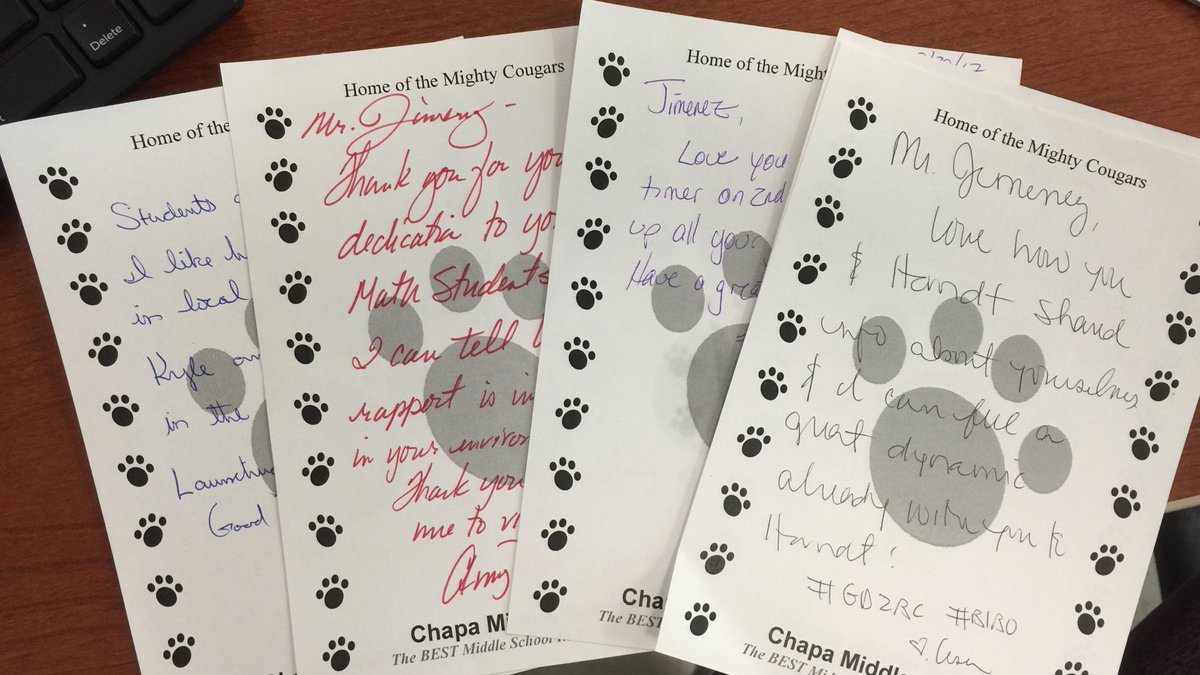 Delete
Home of the
Students
I like
in local
Kyle
in the
Good
Home of the Mighty Cougars
Mr. Jimenez -
Thank you for you
dedication to yo
Math Students
I can tell
rapport is in
in your enviro
Thank you
me to vi
Amy
Chapa Mi
The BEST Middle School
Home of the Migh
Jimenez,
Love you
timer on 2nd
up all your
Have a grea
Cha
The BEST
Home of the Mighty Cougars
Mr. Jimenez,
Love how you
& Harndt shared
info about yourselves
& I can feel a
great dynamic
already with you &
Harndt!
#GD2RC #BIBO
Chapa Middle
The BEST Mid